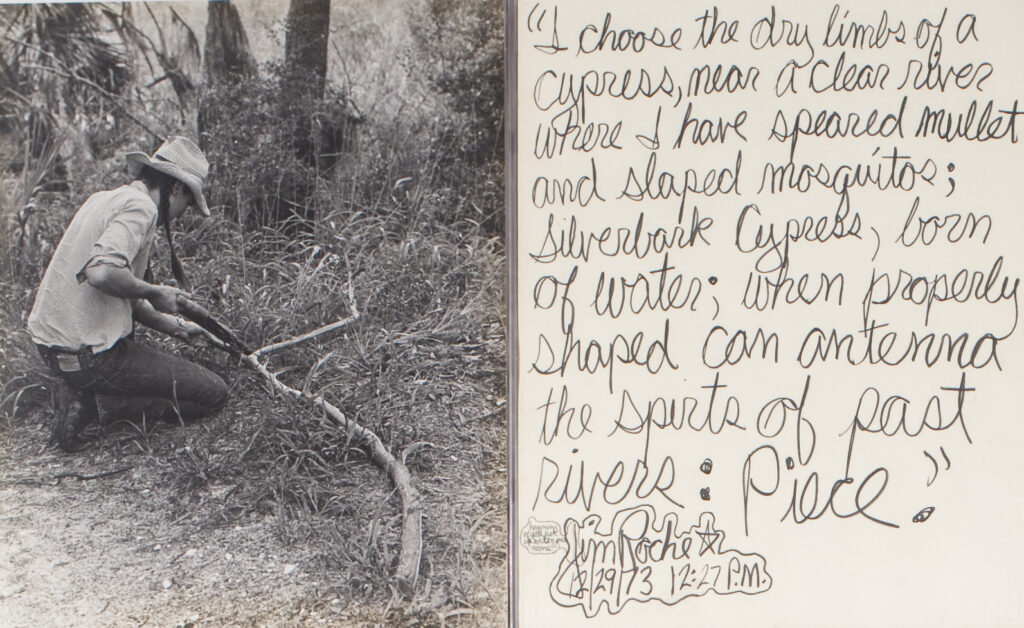 "I choose the dry limbs of a
cypress, near a clear river
where I have speared mullet
and slaped mosquitos;
Silverbark Cypress, born
of water; when properly
shaped can antenna
the spirts of past
rivers: Piece."
Jim Roche
12/29/73 12:27 P.M.